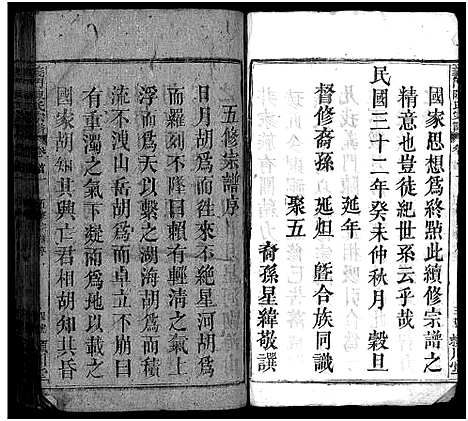 國家思想爲終點此續修宗譜之
精意也豈徒紀世系云乎哉
民國三十二年癸未仲秋月 穀旦
延年
督修裔孫 延炟 曁合族同識
聚五
裔孫星緯敬譔
五修宗譜序
日月胡爲而徃來不絶星河胡爲
而羅刻不隆日賴有輕清之氣上
浮而爲天以繫之湖海胡爲而大
流不洩山岳胡爲而卓立不崩曰
有重濁之氣下凝而爲地以載之
國家胡爲其興亡君相胡知其昏